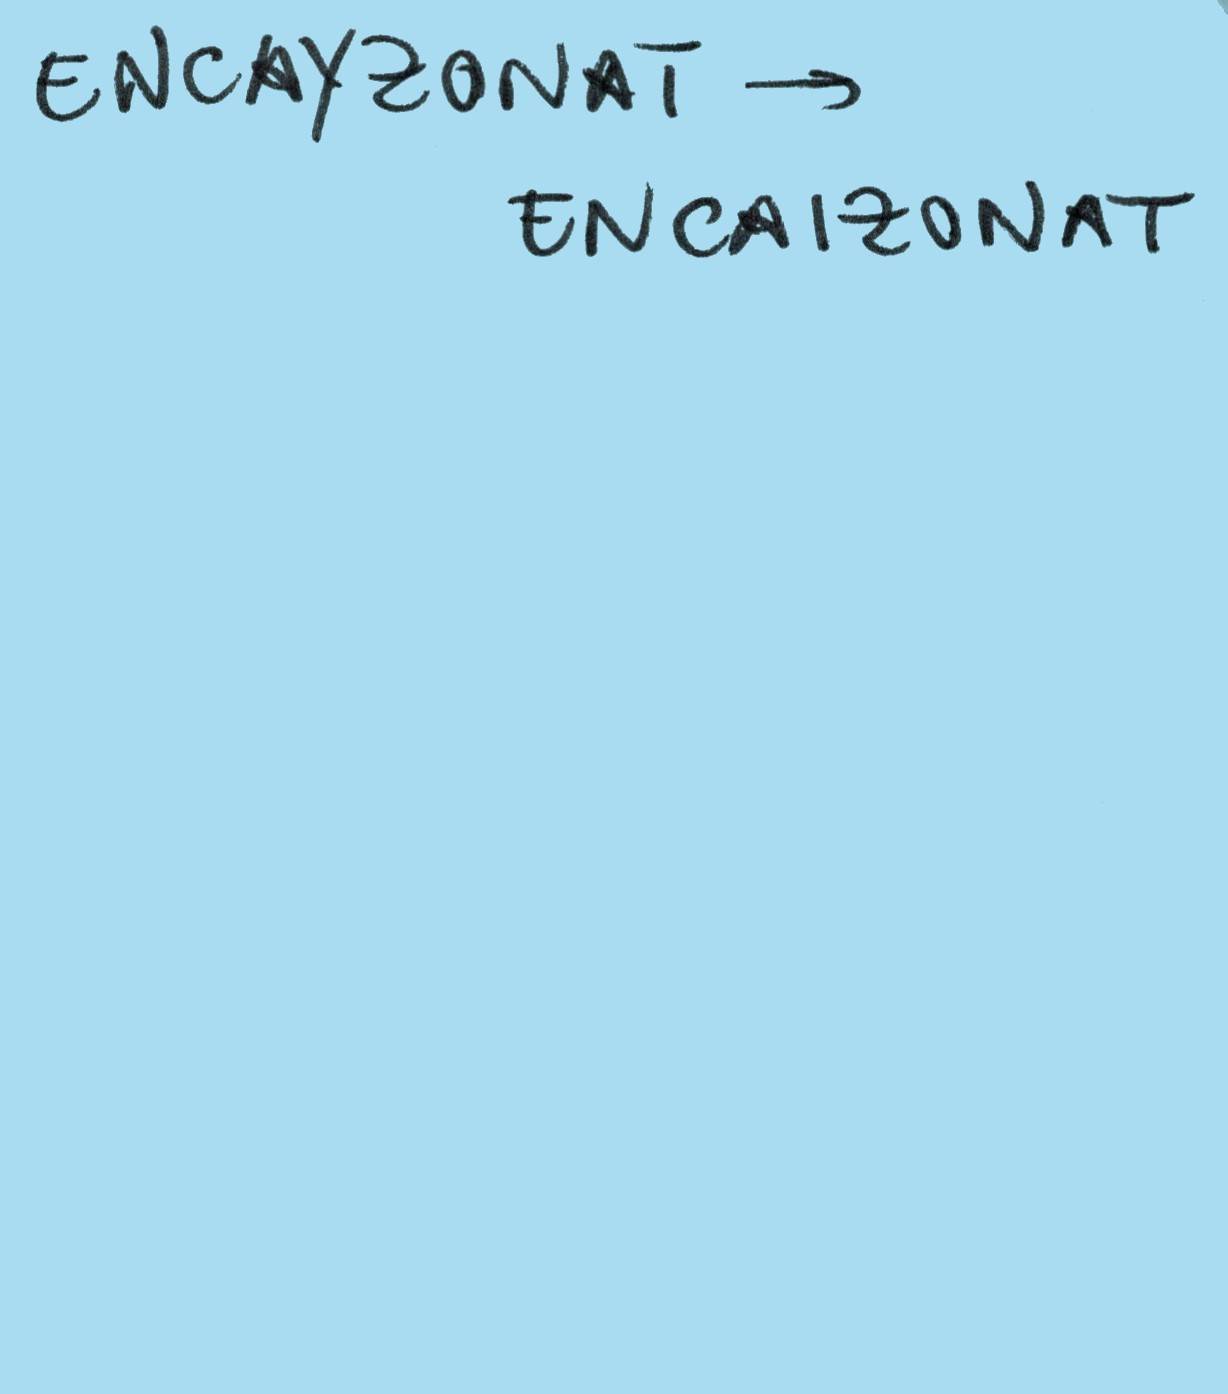 ENCAYZONAT →
ENCAIZONAT